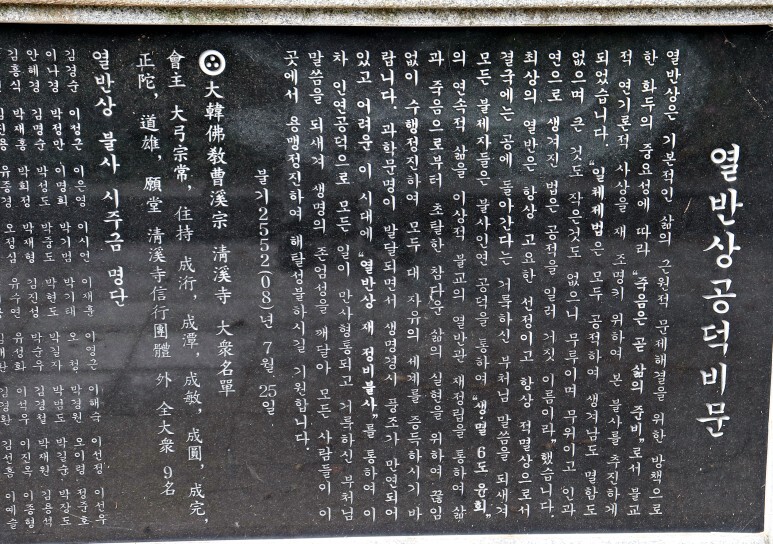 열반상공덕비문
열반상은 기본적인 삶의 근원적 문제해결을 위한 방책으로
한 화두의 중요성에 따라 "죽음은 곧 삶의 준비"로서 불교
적 연기론적 사상을 재 조명키 위하여 본 불사를 추진하게
되었습니다. "일체제법은 모두 공적하여 생겨남도 멸함도
없으며 큰 것도 작은것도 없으니 무루이며 무위이고 인과
연으로 생겨진 법은 공적을 일러 거짓 이름이라"했습니다.
최상의 열반은 항상 고요한 선정이고 항상 적멸상으로서
결국에는 공에 돌아간다는 거룩하신 부처님 말씀을 되새겨
모든 불제자들은 불사인연 공덕을 통하여 "생·멸 6도 윤회"
의 연속적 삶을 이상적 불교의 열반관 재정립을 통하여 삶
과 죽음으로부터 초탈한 참다운 삶의 실현을 위하여 끊임
없이 수행정진하여 모두 대 자유의 세계를 증득하시기 바
랍니다. 과학문명이 발달되면서 생명경시 풍조가 만연되어
있고 어려운 이 시대에 "열반상 재 정비불사"를 통하여 이
차 인연공덕으로 모든 일이 만사형통되고 거룩하신 부처님
말씀을 되새겨 생명의 존엄성을 깨달아 모든 사람들이 이
곳에서 용맹정진하여 해탈성불하시길 기원합니다.
불기2552(08)년 7월 25일
大韓佛敎曹溪宗 清溪寺 大衆名單
會主 大弓宗常, 住持 成浵, 成潭, 成敏, 成圓, 成完,
正陀, 道雄, 願堂 清溪寺信行團體 外 全大衆 9名
열반상 불사 시주금 명단
김경순 이정근 이은영 이시언 이재훈 이영근 이해숙 이선정 이선우
이나경 박정만 이명희 박기범 박기태 오청 박경원 오이령 정준호
안혜경 김명순 박성도 박중도 박현도 박길자 박범도 박길순 박장도
김홍식 박재홍 박희정 박재형 김진성 박순우 김경철 박재원 김용석
유종경 오정심 유수연 유성화 이석우 이진옥 이종형
김선흠 이예슬